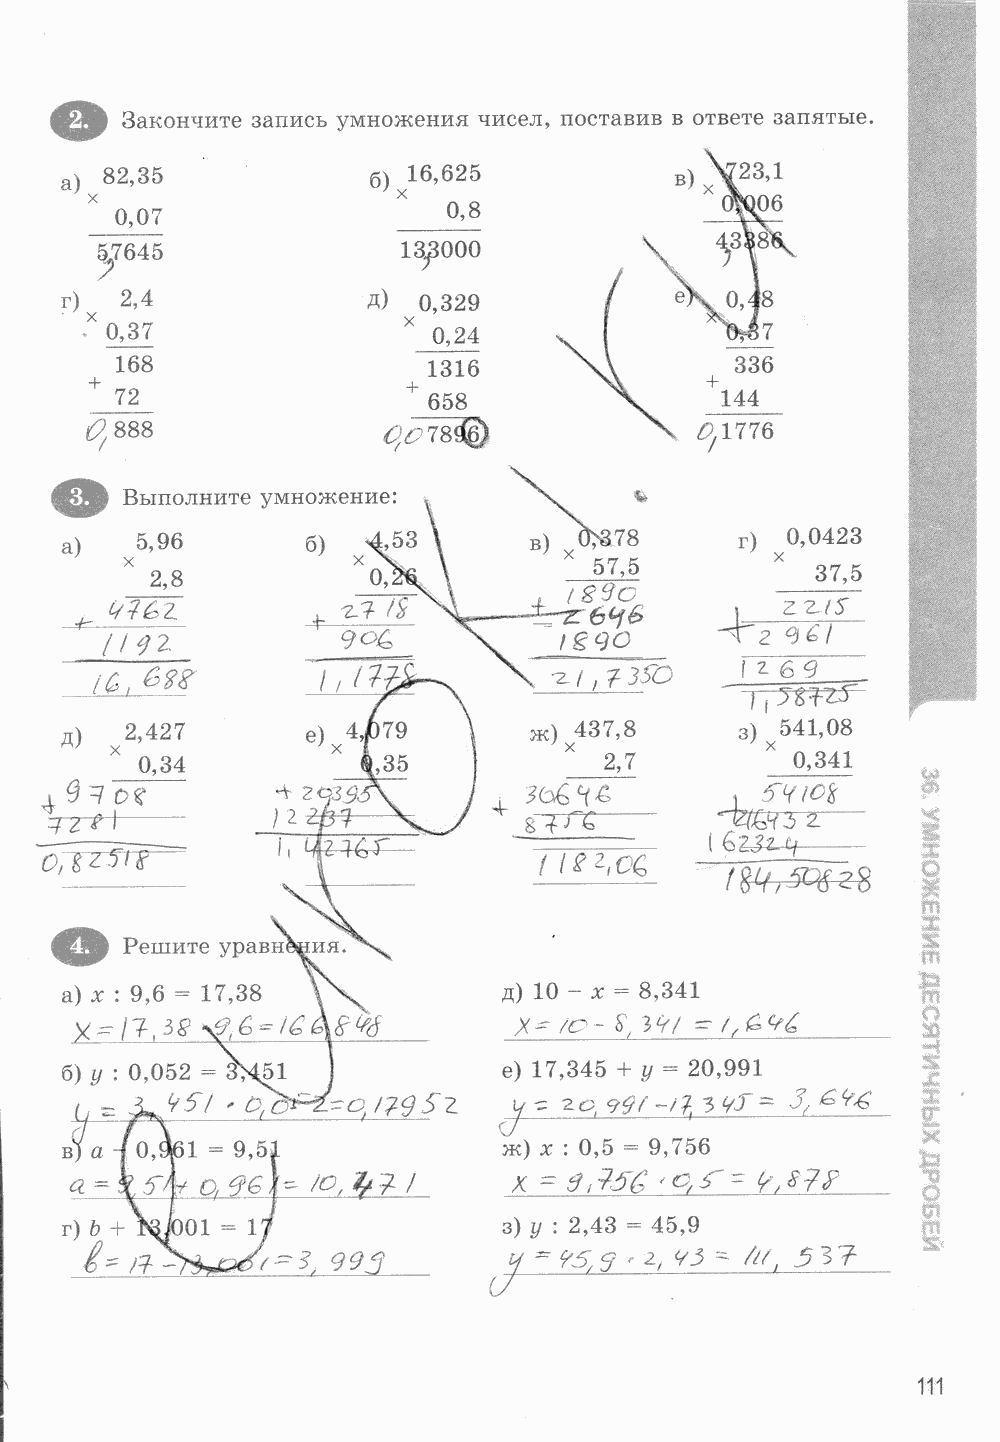 2. Закончите запись умножения чисел, поставив в ответе запятые.
а) 82,35 б) 16,625 в) 723,1
× 0,07 × 0,8 × 0,006
5,7645 13,3000 4,3386
г) 2,4 д) 0,329 е) 0,48
× 0,37 × 0,24 × 0,37
168 1316 336
+ 72 + 658 + 144
0,888 0,07896 0,1776
3. Выполните умножение:
а) 5,96 б) 4,53 в) 0,378 г) 0,0423
× 2,8 × 0,26 × 57,5 × 37,5
+ 4762 + 2718 + 1890 + 2215
1192 906 2646 2961
16,688 1,1778 1890 1269
21,7350 1,58725
д) 2,427 е) 4,079 ж) 437,8 з) 541,08
× 0,34 × 0,35 × 2,7 × 0,341
+ 9708 + 20395 + 30646 + 54108
7281 12237 8756 216432
0,82518 1,42765 1182,06 162324
184,50828
4. Решите уравнения.
а) x : 9,6 = 17,38
x = 17,38 · 9,6 = 166,848
б) y : 0,052 = 3,451
y = 3,451 · 0,052 = 0,17952
в) a − 0,961 = 9,51
a = 9,51 + 0,961 = 10,471
г) b + 13,001 = 17
b = 17 − 13,001 = 3,999
д) 10 − x = 8,341
x = 10 − 8,341 = 1,646
е) 17,345 + y = 20,991
y = 20,991 − 17,345 = 3,646
ж) x : 0,5 = 9,756
x = 9,756 · 0,5 = 4,878
з) y : 2,43 = 45,9
y = 45,9 · 2,43 = 111,537
36. УМНОЖЕНИЕ ДЕСЯТИЧНЫХ ДРОБЕЙ
111